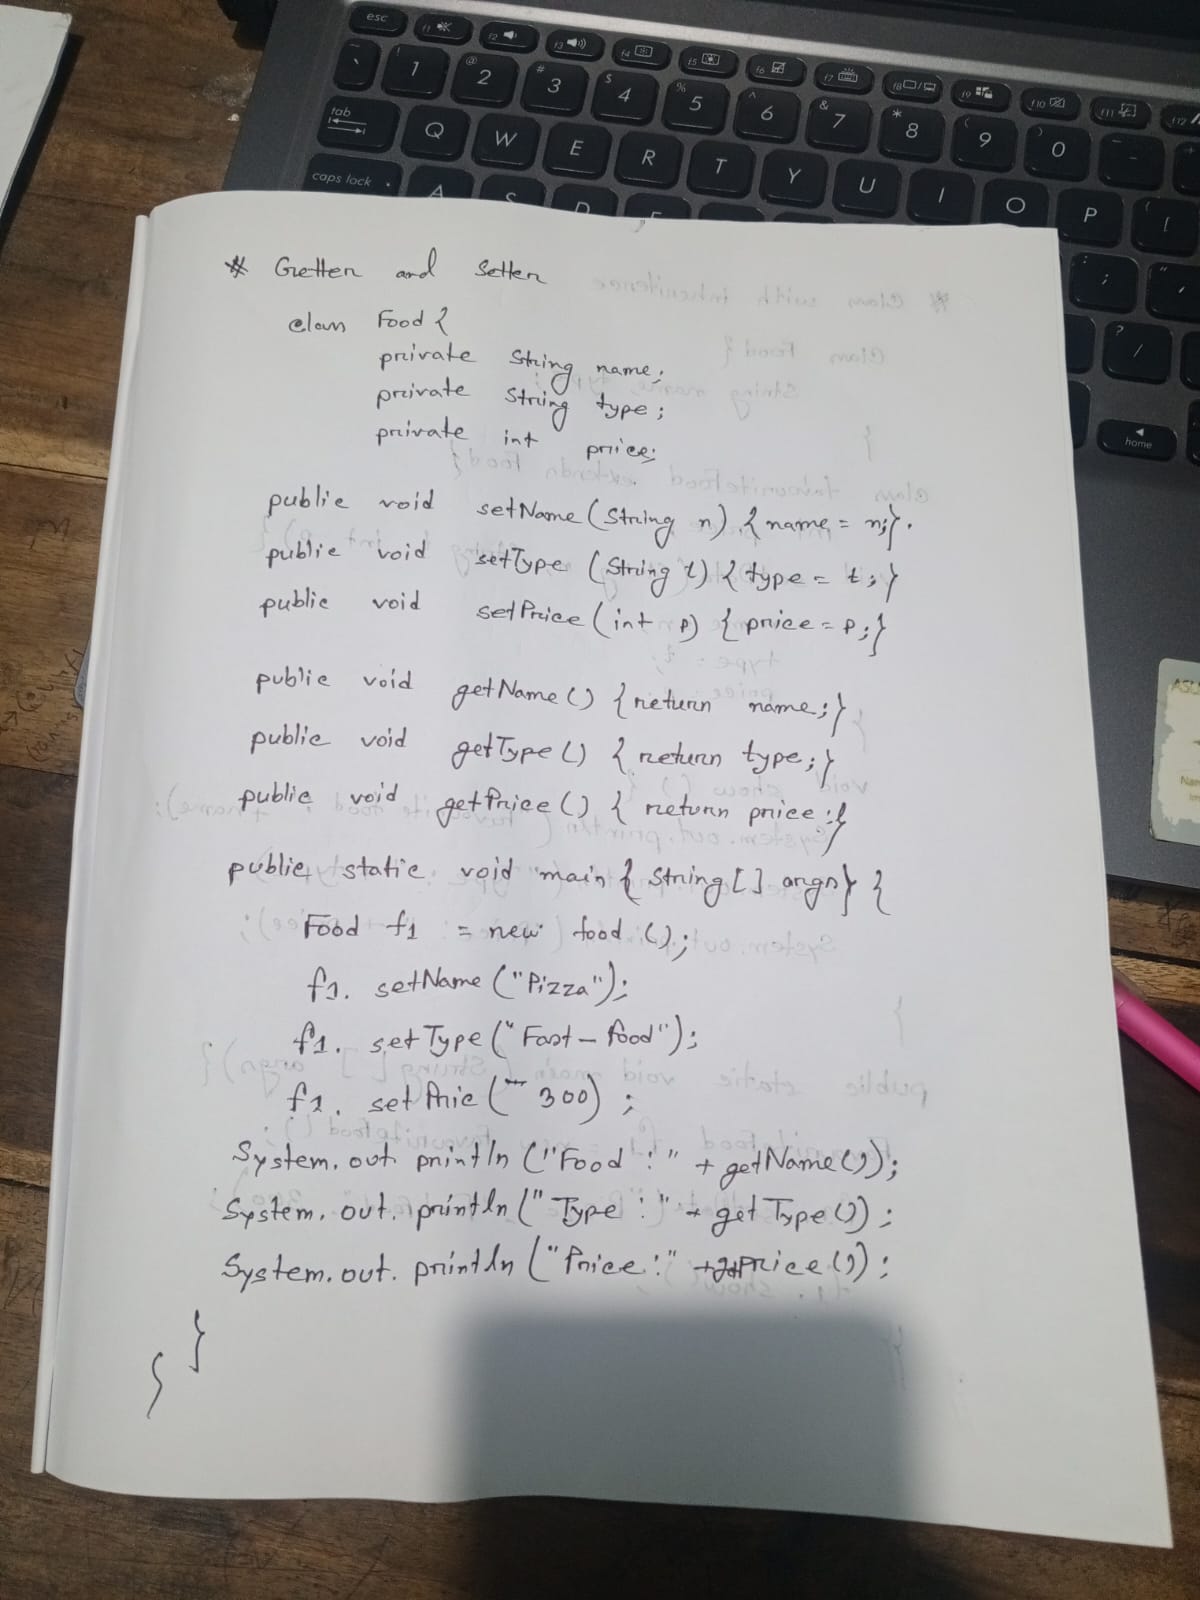 esc f1 f2 f3 f4 f5 f6 f7 f8 f9 f10 f11 f12
1 @ 2 # 3 $ 4 % 5 ^ 6 & 7 * 8 ( 9 ) 0
tab Q W E R T Y U I O P
caps lock A S D
home
* Getter and Setter
class Food {
private String name;
private String type;
private int price;
public void setName (String n) { name = n;}.
public void setType (String t) { type = t; }
public void setPrice (int p) { price = p; }
public void getName () { return name; }
public void getType () { return type; }
public void getPrice () { return price ; }
public static void main { String [] args } {
Food f1 = new food ();
f1. setName ("Pizza");
f1. set Type (" Fast - food");
f1. set Pric ( 300) ;
System. out. println ("Food : " + getName ());
System. out. println (" Type : " + get Type ()) ;
System. out. println ("Price : " + getPrice ()) ;
}
}